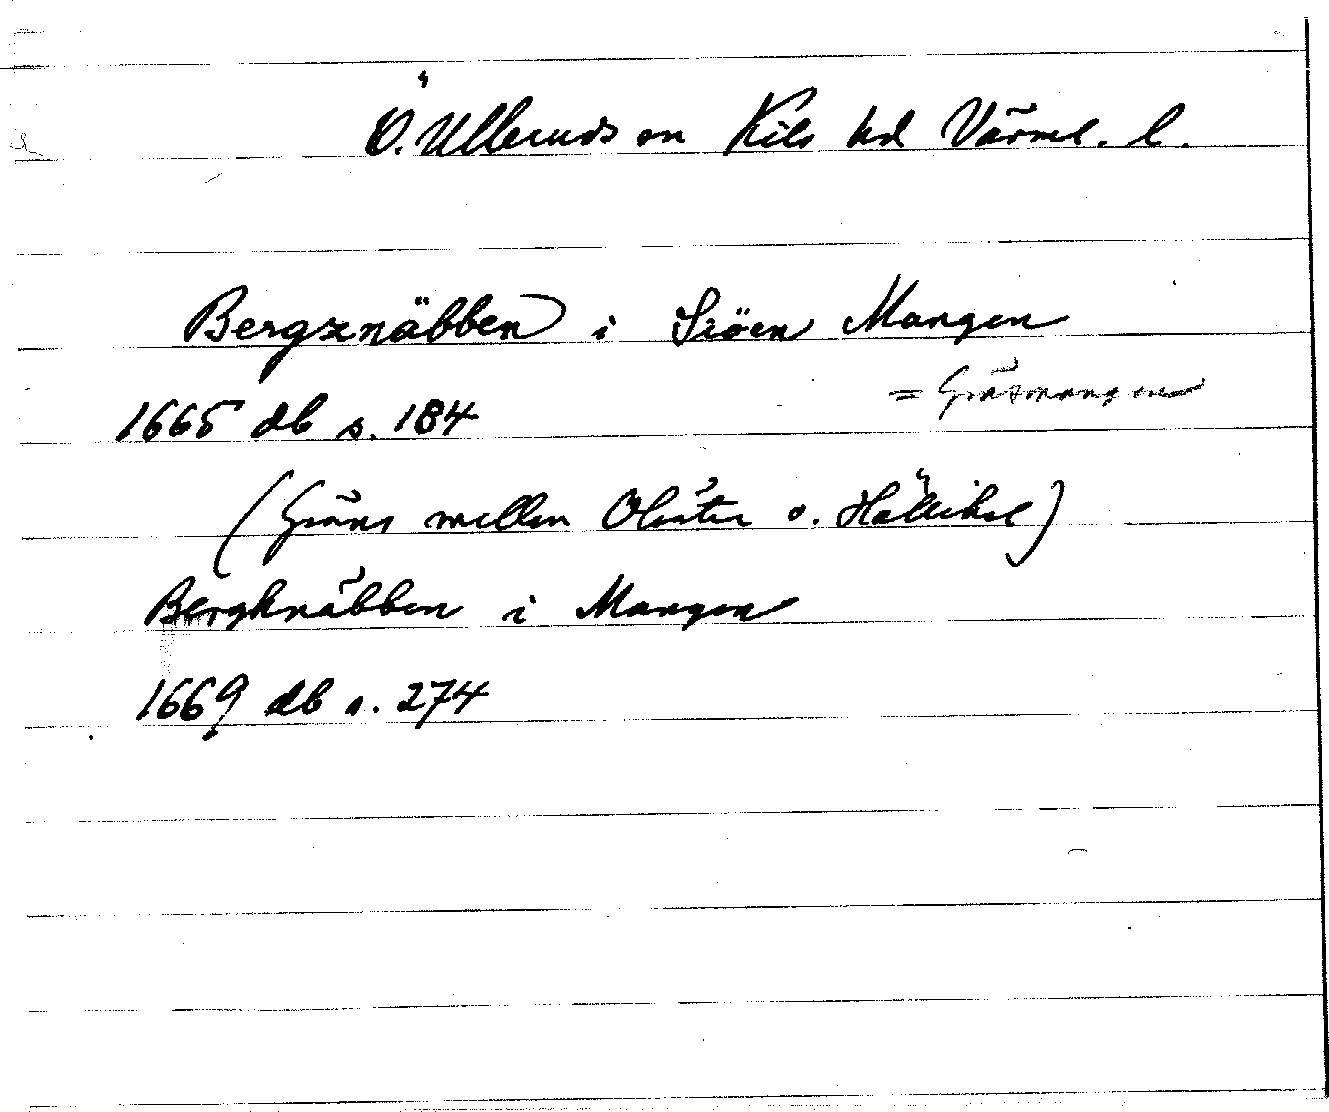 Ö. Ulleruds sn Kils hd Värml. l.
Bergznäbben i Siöen Mangen
= Gräsmangen
1665 db s. 184
(Gräns mellan Olsäter o. Hällekil)
Bergknäbben i Mangen
1669 db s. 274